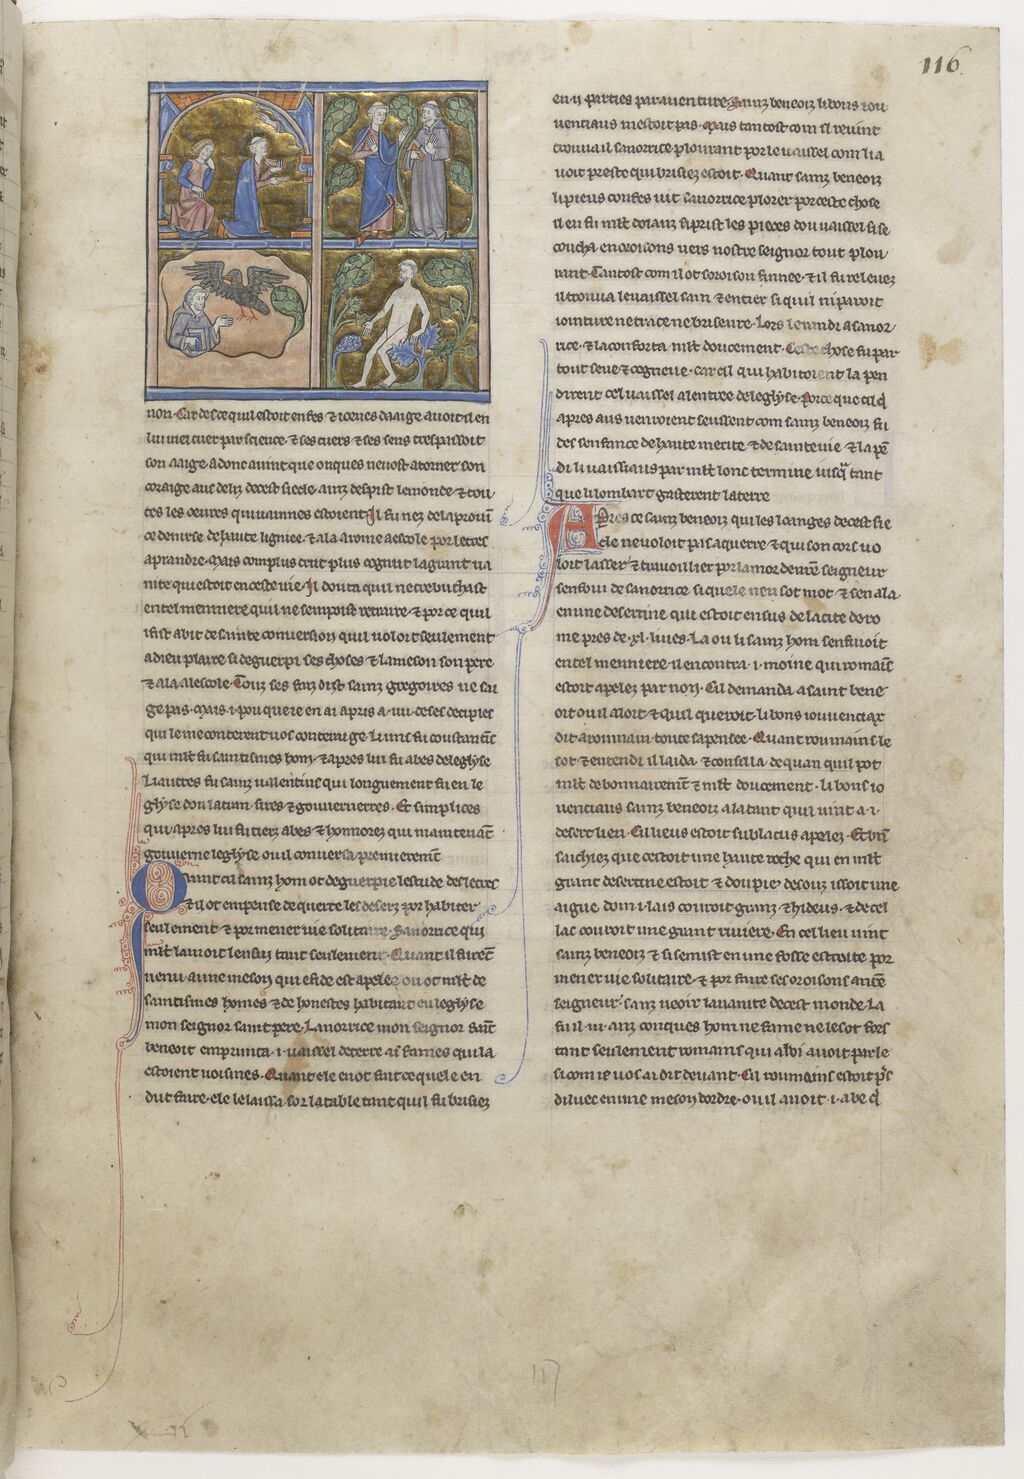 116
non. Car des ce quil estoit enfes & ioenes daaige auoit il en
lui viel cuer par science. & ses cuers & ses sens trespassoit
son aaige adonc auint que onques ne uost atorner son
coraige aus deliz de cest siecle. ainz despist le monde & tou
tes les oeures qui uainnes estoient. Il fu nez de la prouī
ce de nurse de haute ligniee. & ala a rome a escole por letres
aprandre. Mais com plus crut plus cognut la grant ua
nite qui estoit en ceste vie. Il douta quil ne trebuchast
en tel menniere quil ne sen post retraire. & por ce quil
isist abit de sainte conuersion quil uoloit seulement
a dieu plaire si deguerpi ses choses & la meson son pere
& ala a lescole. Touz ses faiz dist sainz gregoires ne sai
ge pas. Mais .i. pou que re en ai apris a .iiii. de ses deciples
qui le me conterent uos conterai ge. Li uns fu constantīs
qui mlt fu saintismes hom. & apres lui fu abes de leglyse
Li autres fu sainz ualentins qui longuement fu en le
glyse dou latran sires & gouuerneres. Et simplices
qui apres lui fu tierz abes & honnorez qui maintenāt
gouuerne leglyse ou il conuersa premieremt
Quant cil sainz hom ot deguerpie lestude des letres
& il ot en pense de querre les deserz por habiter
seulement. & por mener vie solitaire. Sa norrice qui
mlt lamoit lensui tant seulement. Quant il furēt
uenu a une meson qui efide est apelee ou ot mlt de
saintismes homes & de honestes habitant en leglyse
mon seignor saint pere. La norrice mon seignor saīt
beneoit emprunta .i. uaissel de terre as fames qui la
estoient uoisines. Quant ele en ot fait ce quele en
dut faire. ele le laissa sor la table tant quil fu brisiez
en .ii. parties par auenture. Sainz beneoiz li bons iou
uenciaus niestoit pas. Mais tantost com il reuint
trouua il sa norrice plourant por le uaissel com li a
uoit preste qui brisiez estoit. Quant sainz beneoiz
li pieus confes uit sa norrice plorer por ceste chose
il en fu mlt dolanz si prist les pieces dou uaissel si se
coucha en oroisons uers nostre seignor tout plou
rant. Tantost com il ot soroison finnee. & il fu releuez
il trouua le uaissel sain & entier si quil ni paroit
iointure ne trace ne briseure. Lors le randi a sa nor
rice. & la conforta mlt doucement. Ceste chose fu par
tout seue & cogneue. car cil qui habitoient la pen
dirent cel uaissel a lentree de leglyse. Por ce que cil q̄
apres aus uenroient seussent com sainz beneoiz fu
des sonfance de haute merite & de sainte vie & la pē
di li uaissiaus par mlt lonc termine iusq̄ tant
que li lombart gasterent la terre
Apres ce sainz beneoiz qui les loanges de cest sie
cle ne uoloit pas aquerre & qui son cors uo
loit lasser & trauoillier por lamor de nrē seigneur
senfoui de sa norrice si quele nen sot mot & sen ala
en une desertine qui estoit ensus de la cite de ro
me pres de .xl. liues. La ou li sainz hom senfuioit
en tel menniere il encontra .i. moine qui romaīs
estoit apelez par non. Cil demanda a saint bene
oit ou il aloit & quil queroit. li bons iouuenciax
dit a roumain toute sa pensee. Quant roumains le
sot & entendi il laida & consella de quan quil pot
mlt debonnairemt & mlt doucement. li bons io
uenciaus sainz beneoiz ala tant quil uint a .i.
desert lieu. Cil lieus estoit sublacus apelez. Et biē
sachiez que cestoit une haute roche qui en mlt
grant desertine estoit & dou pie desouz issoit une
aigue dom .i. lais couroit granz & hideus. & de cel
lac couroit une grant riuiere. En cel lieu uint
sainz beneoiz & si se mist en une fosse estroite por
mener vie solitaire. & por faire ses oroisons a nrē
seigneur. sanz ueoir la uanite de cest monde. La
fu il .iii. anz conques hom ne fame ne le sot fors
tant seulement romains qui a lui auoit parle
si com ie uos ai dit deuant. Cil roumains estoit pˢ
diluec en une meson dordre. ou il auoit .i. abe q̄
117